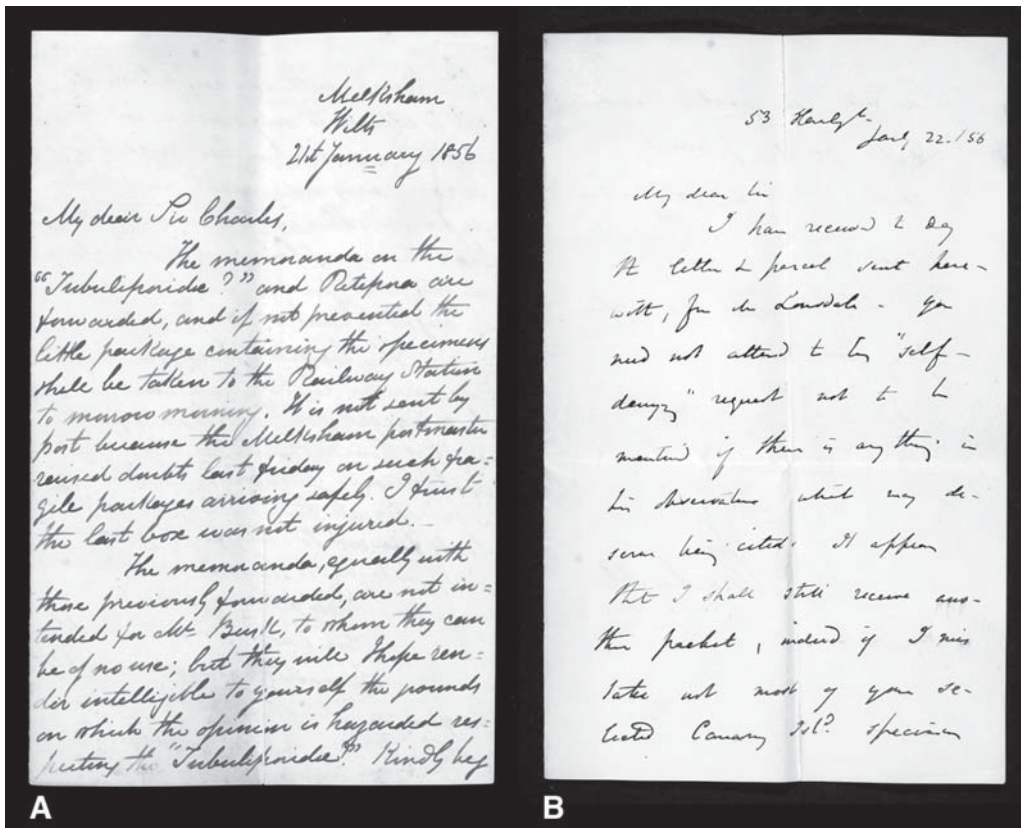 Melksham
Wilts
21st January 1856
My dear Sir Charles,
The memoranda on the
"Tubuliporidae?" and Retepora are
forwarded, and if not prevented the
little package containing the specimens
shall be taken to the Railway Station
to morrow morning. It is not sent by
post because the Melksham postmaster
raised doubts last friday on such fra=
gile packages arriving safely. I trust
the last box was not injured.—
The memoranda, equally with
those previously forwarded, are not in=
tended for Mr. Busk, to whom they can
be of no use; but they will I hope ren=
der intelligible to yourself the grounds
on which the opinion is hazarded res=
pecting the "Tubuliporidae?" Kindly beg
A
53 Harley St.
Jany 22./56
My dear Sir
I have received to day
the letter & parcel sent here-
with, from Mr Lonsdale - You
need not attend to his "self-
denying" request not to be
mentioned if there is anything in
his observations which may de-
serve being cited. It appears
that I shall still receive ano-
ther packet, indeed if I mis
take not most of your se-
lected Canary Isld. specimens
B